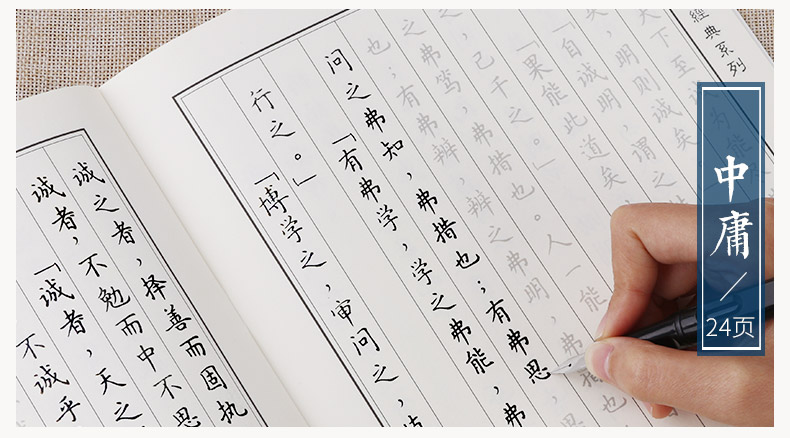 經典系列
天下至诚
明则诚矣
「自诚明，谓之
「果能此道矣
己千之。」
弗措也。人一能
有弗辨，辨之弗明，
也；有弗笃
问之弗知，弗措也；有弗思
「有弗学，学之弗能，弗
行之。」
「博学之，审问之，
诚之者，择善而固执
诚者，不勉而中不思
「诚者，天之
不诚乎
中庸
24页